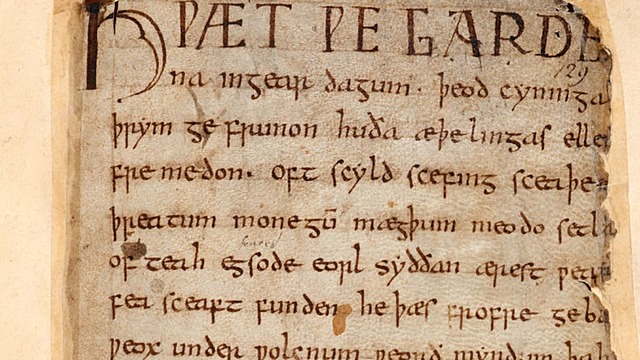 HǷÆT ǷE GARDE
na ingear dagum. þeod cyninga
þrym ge frunon huða æþelingas elle
fremedon. oft scyld scefing sceaþe
þreatum monegū mægþum meodo setla
of teah egsode eorl syððan ærest ƿearð
fea sceaft funden he þæs frofre geba
ƿeox under ƿolcnum ƿeorð myndum þah